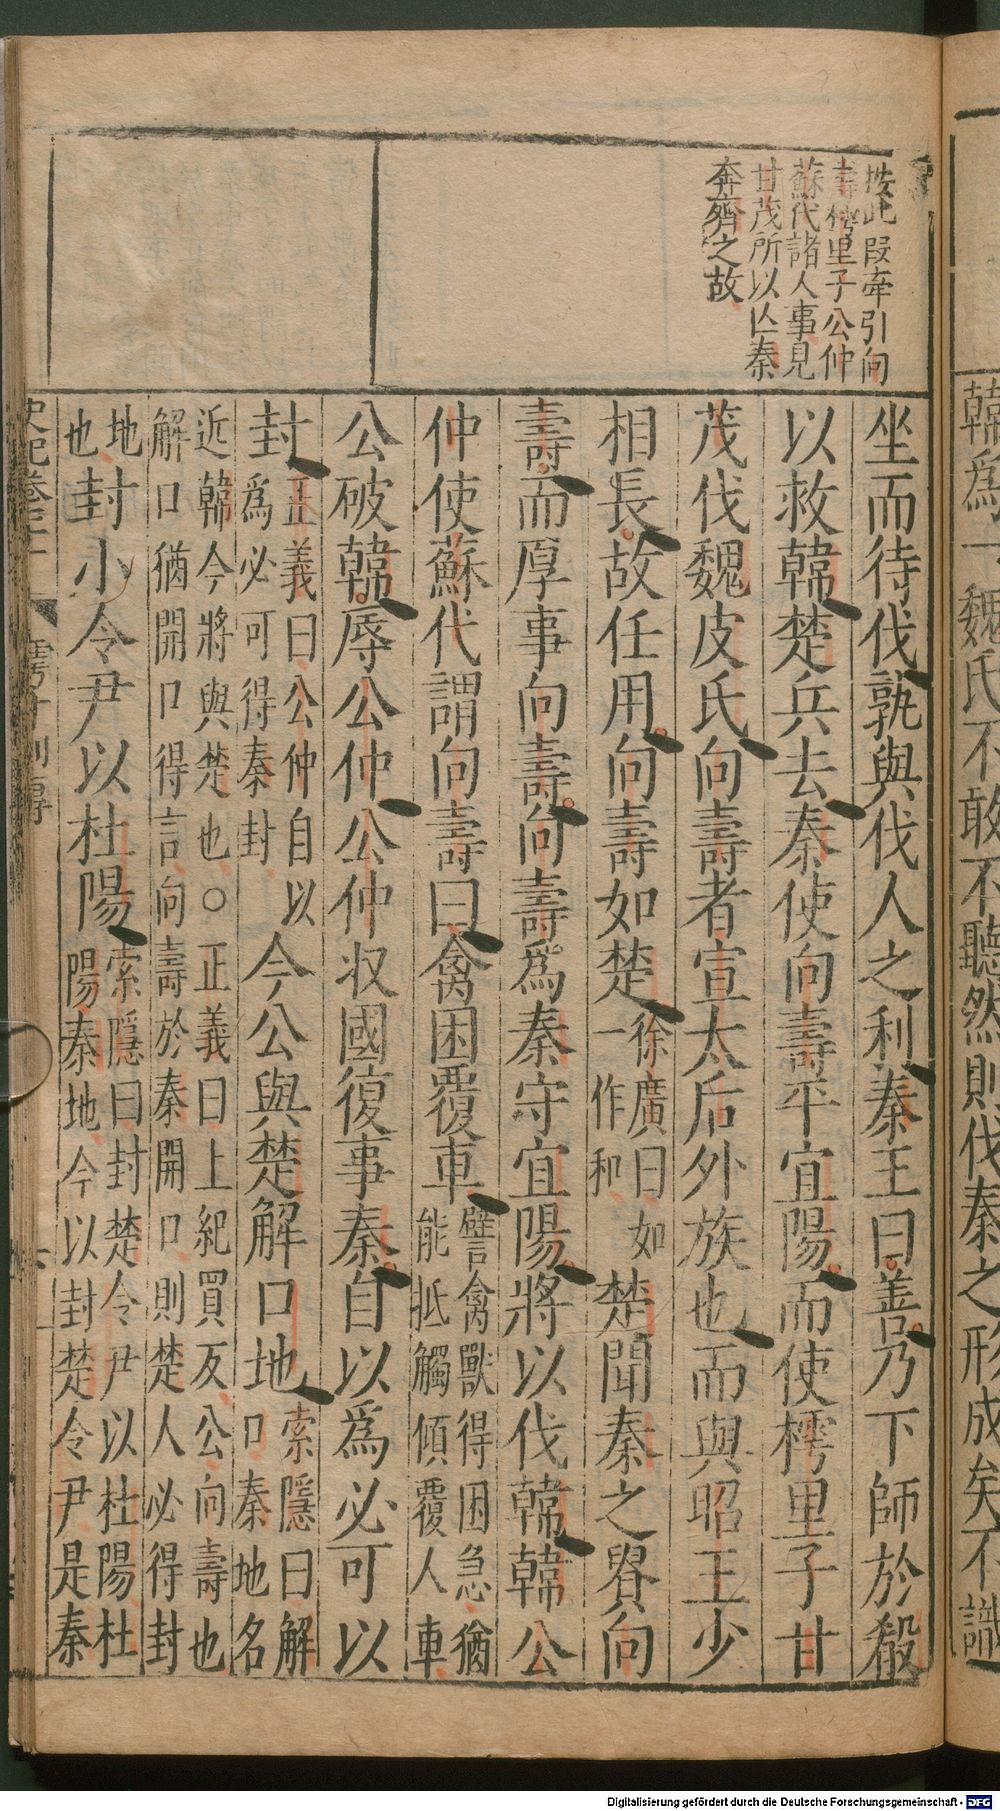 按此段牽引向
壽樗里子公仲
蘇代諸人事見
甘茂所以亾秦
奔齊之故
坐而待伐孰與伐人之利秦王曰善乃下師於殽
以救韓楚兵去秦使向壽平宜陽而使樗里子甘
茂伐魏皮氏向壽者宣太后外族也而與昭王少
相長故任用向壽如楚
徐廣曰如
一作和
楚聞秦之貴向
壽而厚事向壽向壽爲秦守宜陽將以伐韓韓公
仲使蘇代謂向壽曰禽困覆車
譬禽獸得困急猶
能抵觸傾覆人車
公破韓辱公仲公仲収國復事秦自以爲必可以
封
正義曰公仲自以
爲必可得秦封
今公與楚解口地
索隱曰解
口秦地名
近韓今將與楚也○正義曰上紀買反公向壽也
解口猶開口得言向壽於秦開口則楚人必得封
地
也
封小令尹以杜陽
索隱曰封楚令尹以杜陽杜
陽秦地今以封楚令尹是秦
韓爲一魏氏不敢不聽然則伐秦之形成矣不識
Digitalisierung gefördert durch die Deutsche Forschungsgemeinschaft - DFG